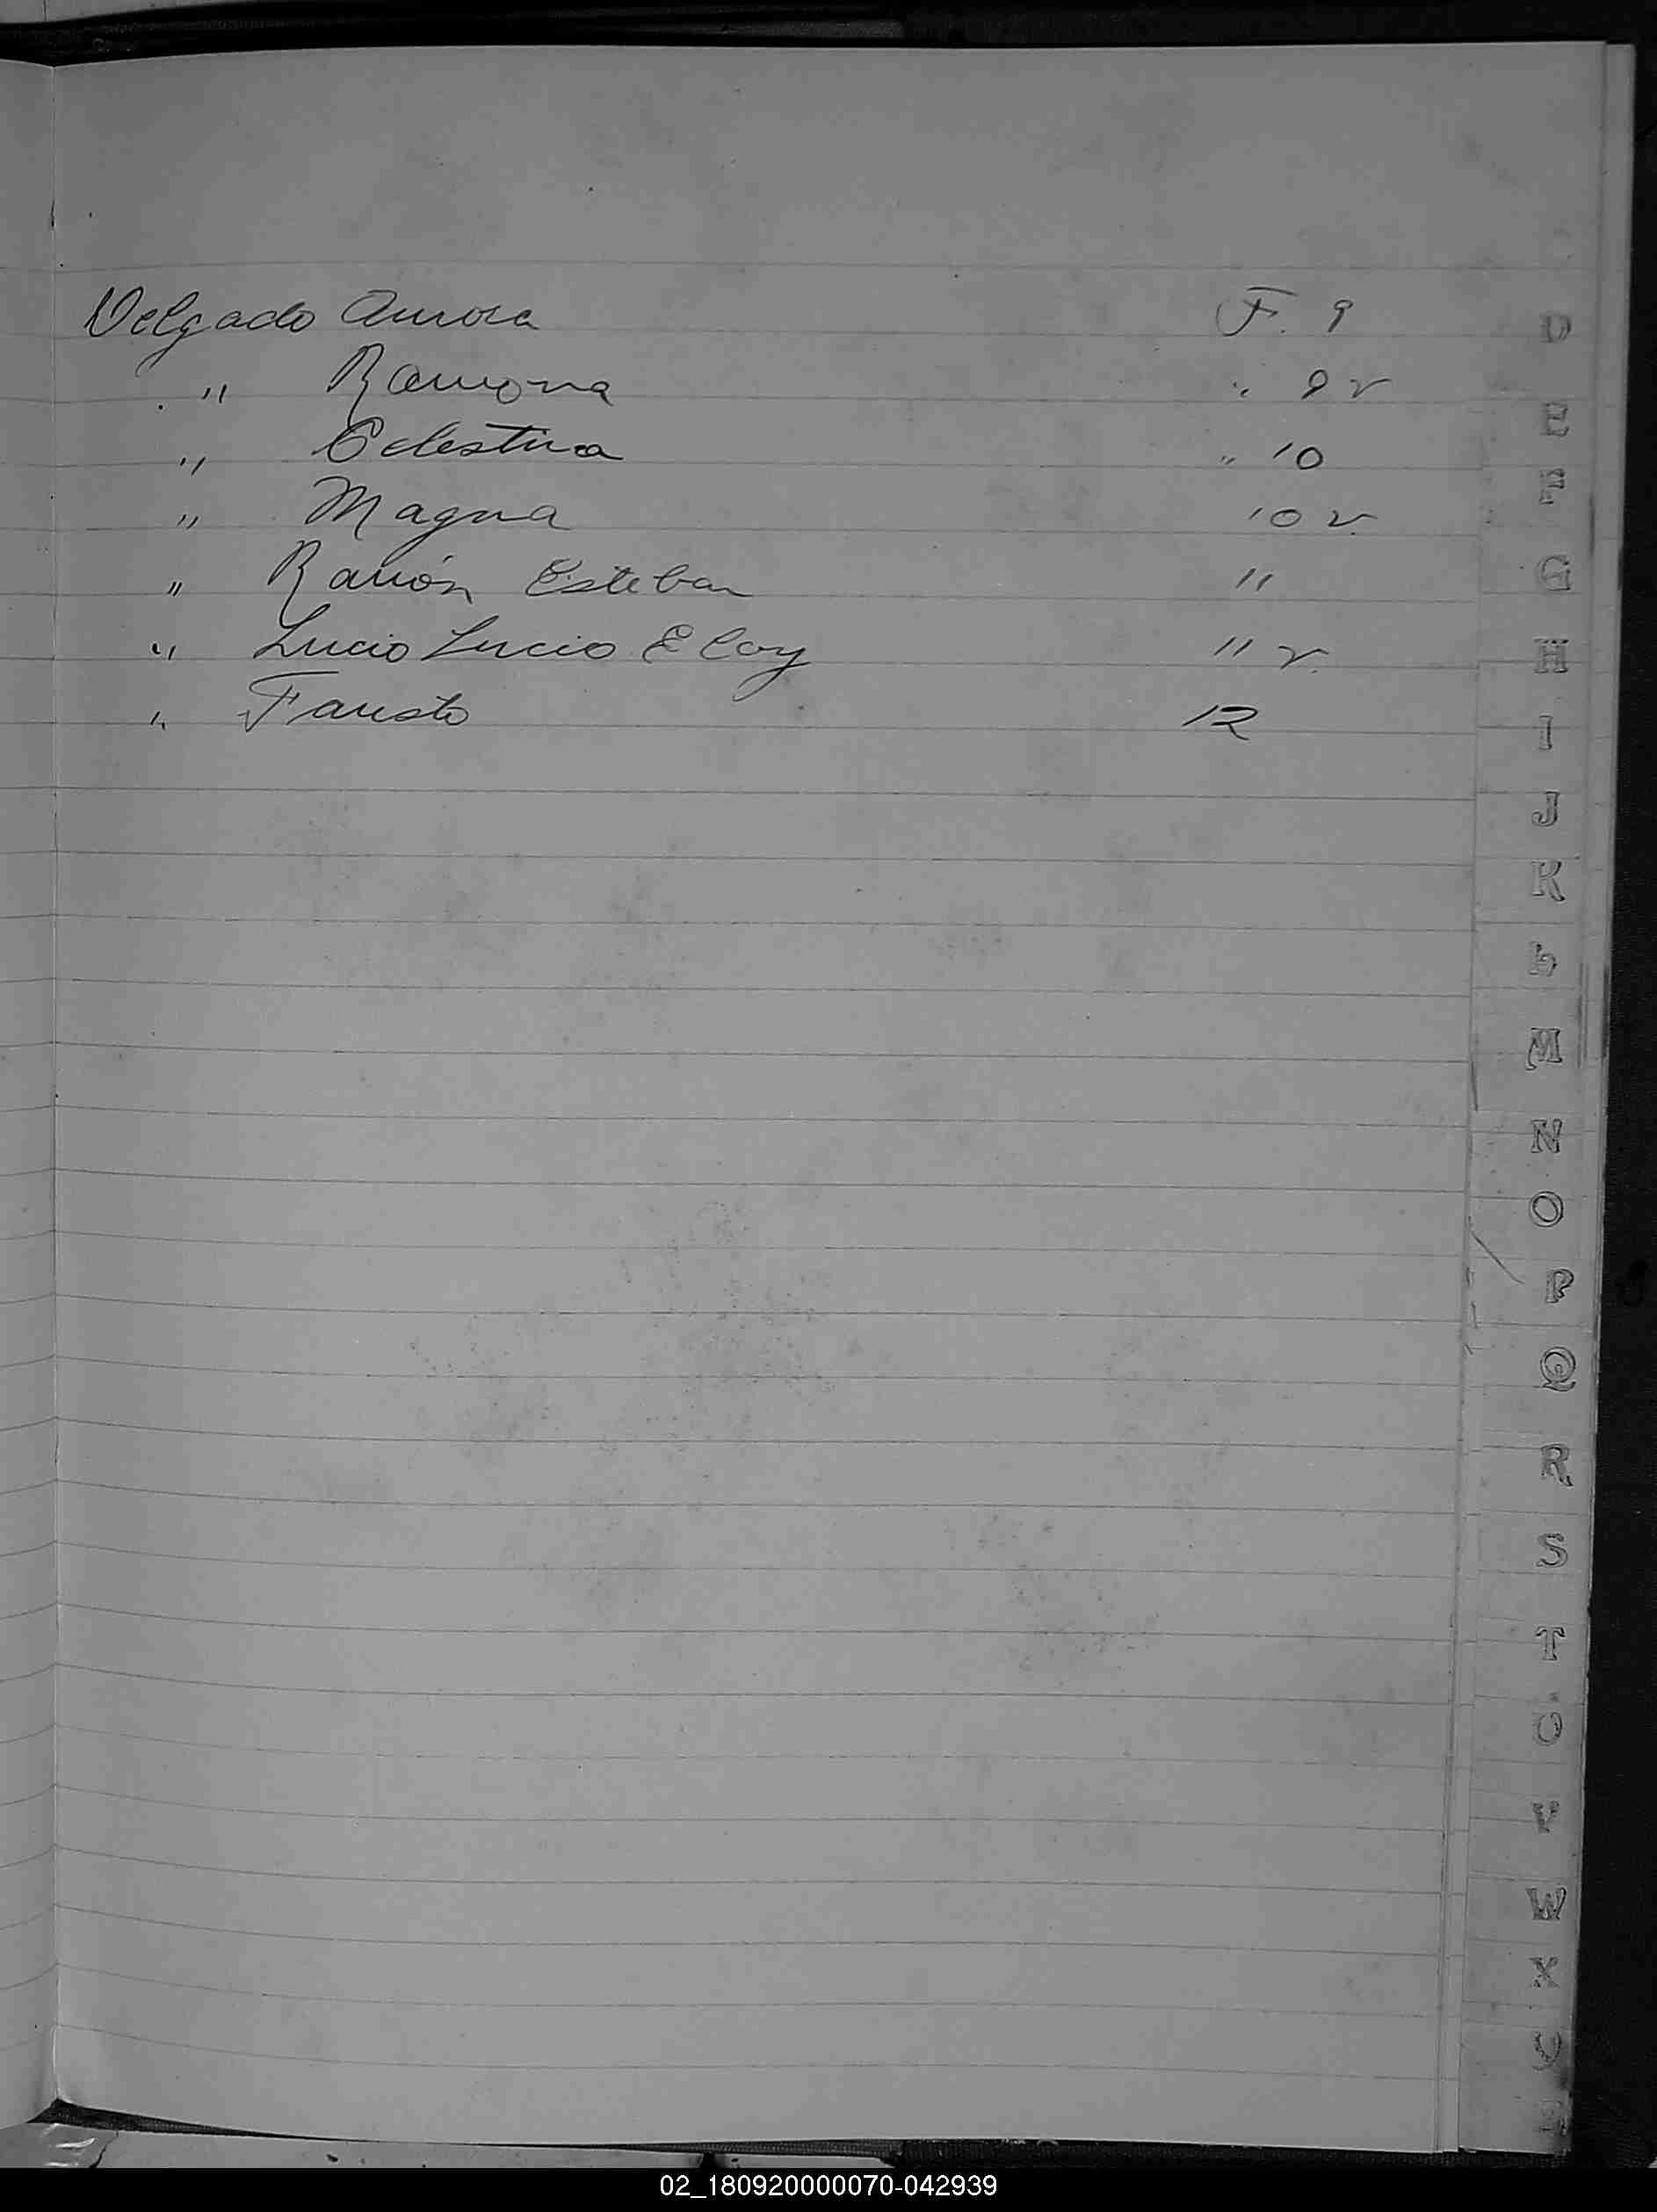 Delgado Aurora F. 9
" Ramona " 9 v
" Celestina " 10
" Magna 10 v.
" Ramón Esteban 11
" Lucio Lucio Eloy 11 v.
" Fausto 12
D
E
F
G
H
I
J
K
L
M
N
O
P
Q
R
S
T
U
V
W
X
Y
02_180920000070-042939